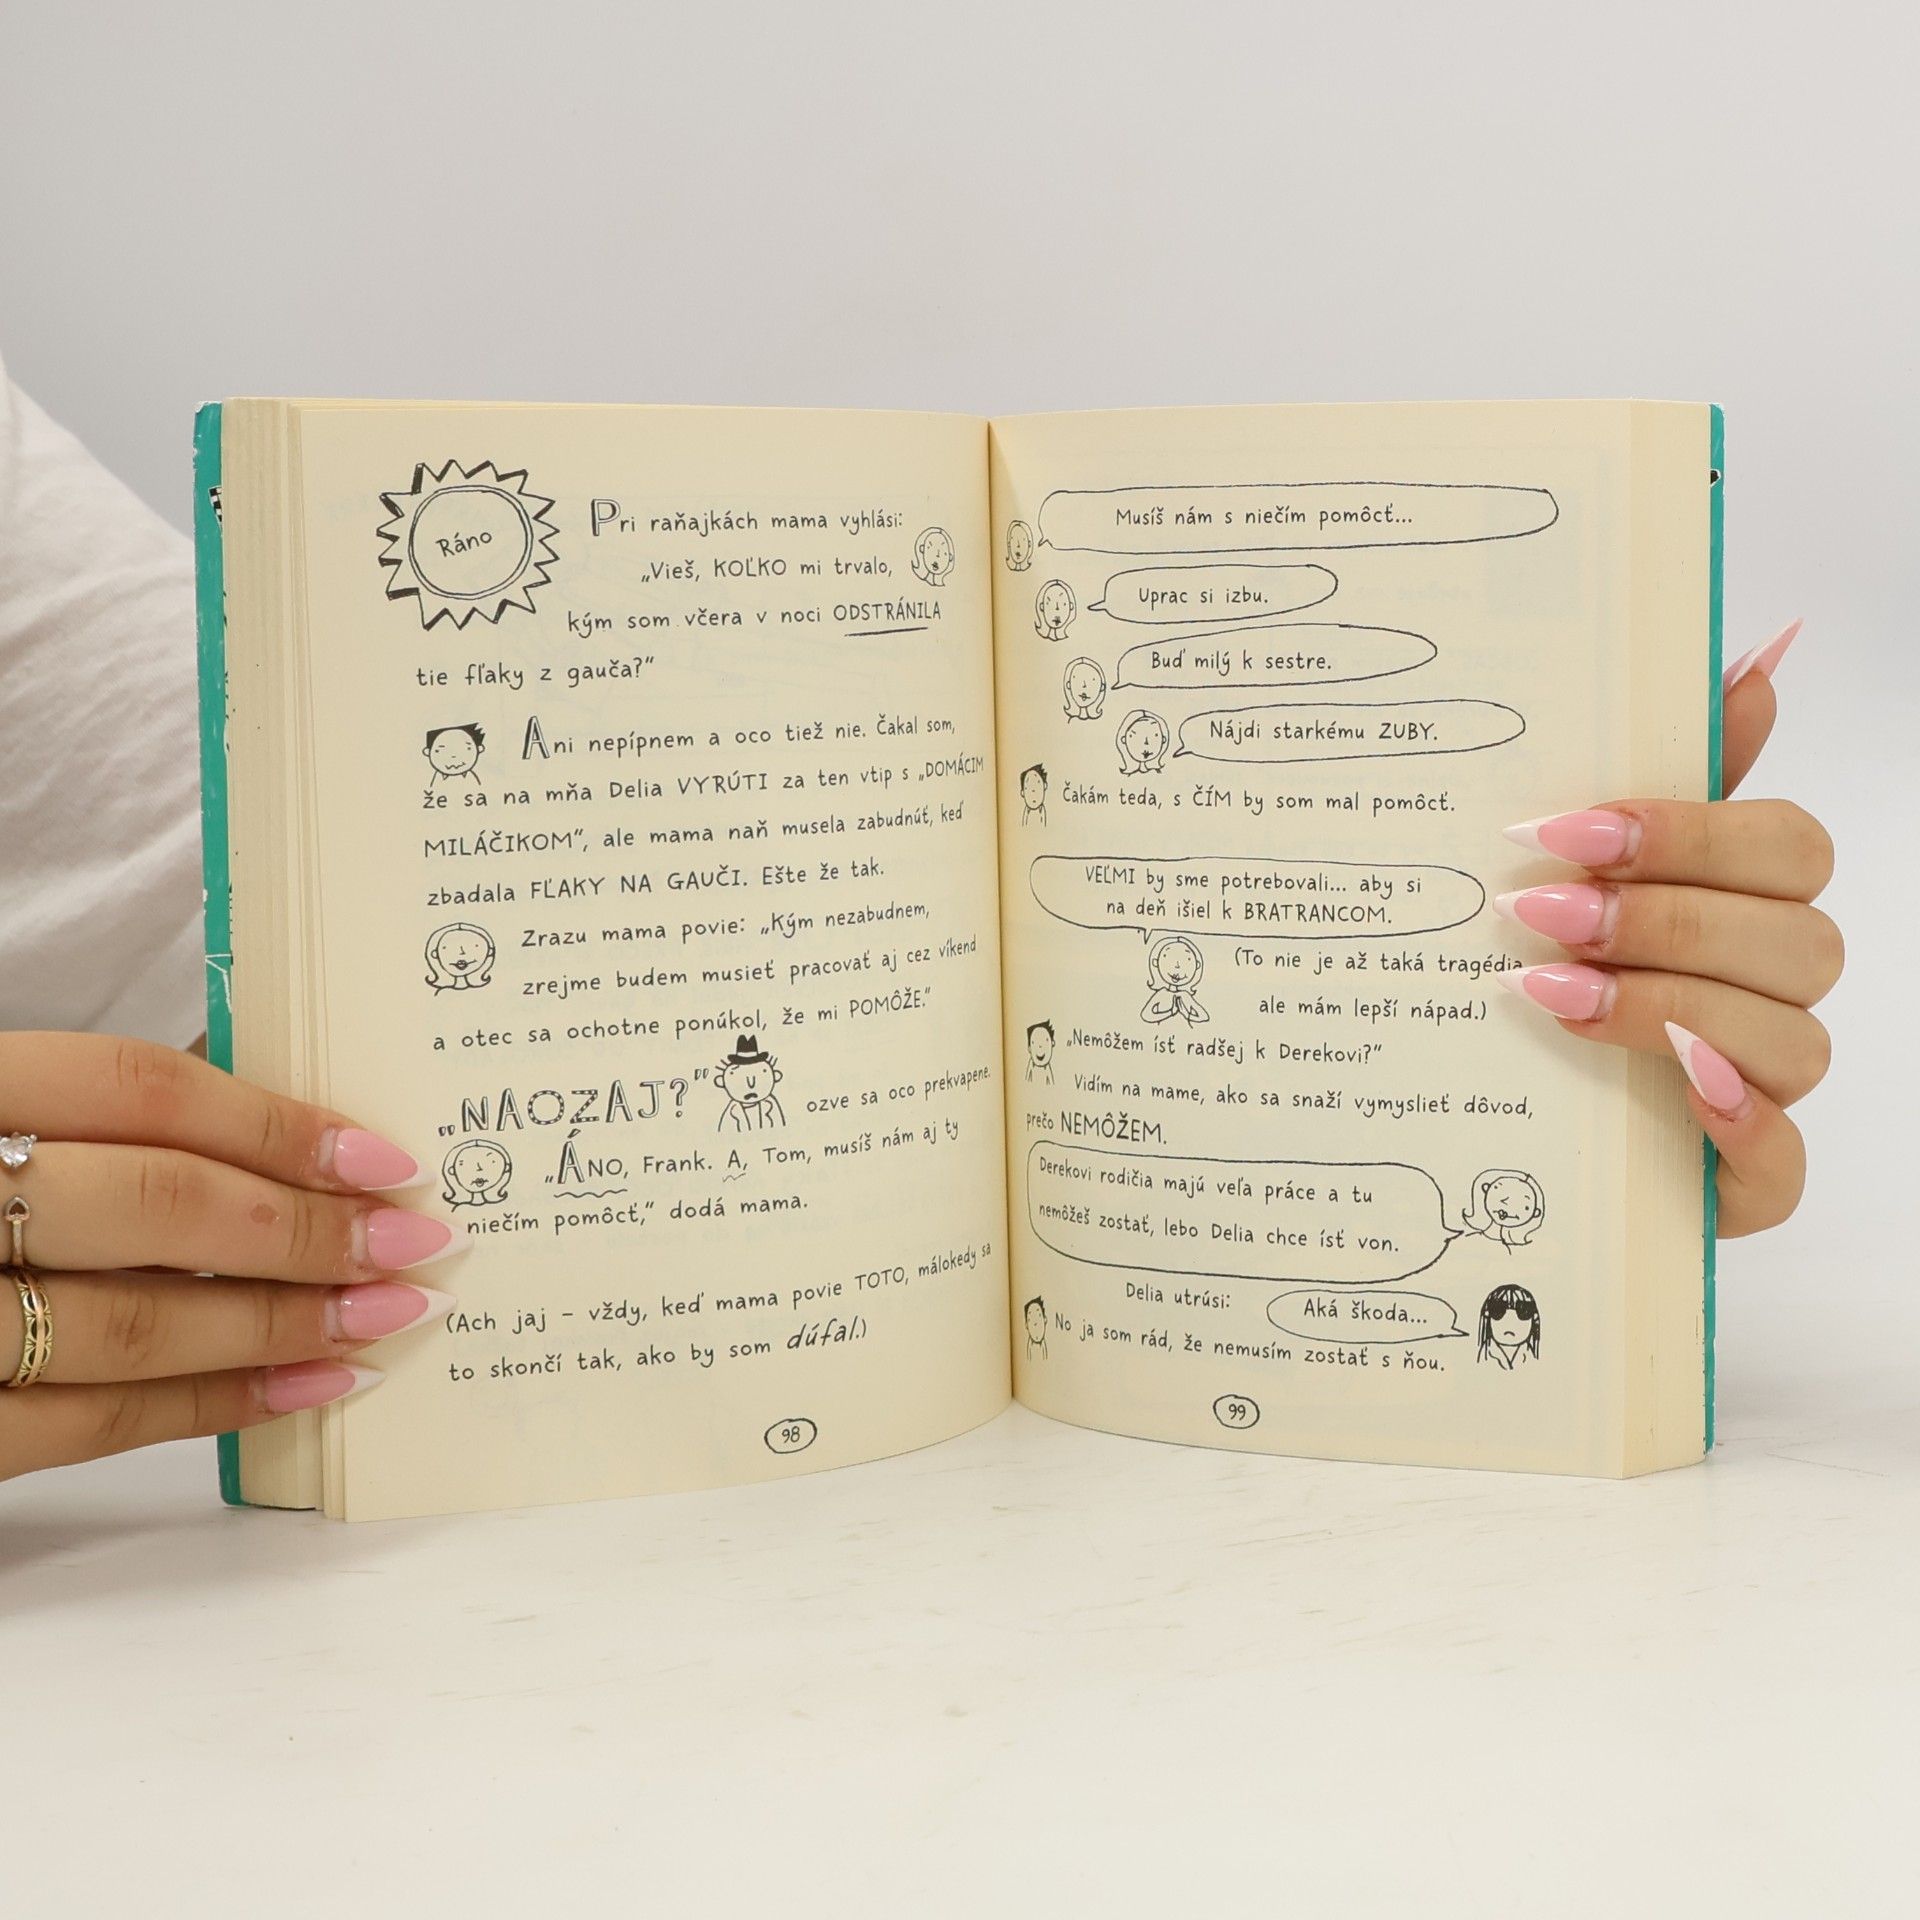 Ráno
Pri raňajkách mama vyhlási:
„Vieš, KOĽKO mi trvalo,
kým som včera v noci ODSTRÁNILA
tie fľaky z gauča?“
Ani nepípnem a oco tiež nie. Čakal som,
že sa na mňa Delia VYRÚTI za ten vtip s „DOMÁCIM
MILÁČIKOM“, ale mama naň musela zabudnúť, keď
zbadala FĽAKY NA GAUČI. Ešte že tak.
Zrazu mama povie: „Kým nezabudnem,
zrejme budem musieť pracovať aj cez víkend
a otec sa ochotne ponúkol, že mi POMÔŽE.“
„NAOZAJ?“ ozve sa oco prekvapene.
„ÁNO, Frank. A, Tom, musíš nám aj ty
niečím pomôcť,“ dodá mama.
(Ach jaj – vždy, keď mama povie TOTO, málokedy sa
to skončí tak, ako by som dúfal.)
98
Musíš nám s niečím pomôcť...
Uprac si izbu.
Buď milý k sestre.
Nájdi starkému ZUBY.
Čakám teda, s ČÍM by som mal pomôcť.
VEĽMI by sme potrebovali... aby si
na deň išiel k BRATRANCOM.
(To nie je až taká tragédia
ale mám lepší nápad.)
„Nemôžem ísť radšej k Derekovi?“
Vidím na mame, ako sa snaží vymyslieť dôvod,
prečo NEMÔŽEM.
Derekovi rodičia majú veľa práce a tu
nemôžeš zostať, lebo Delia chce ísť von.
Delia utrúsi: Aká škoda...
No ja som rád, že nemusím zostať s ňou.
99